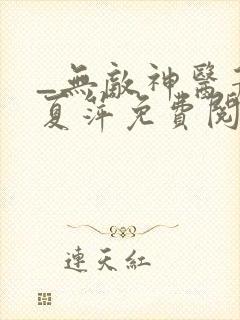 _無敵神醫
夏萍免費閱
連天紅